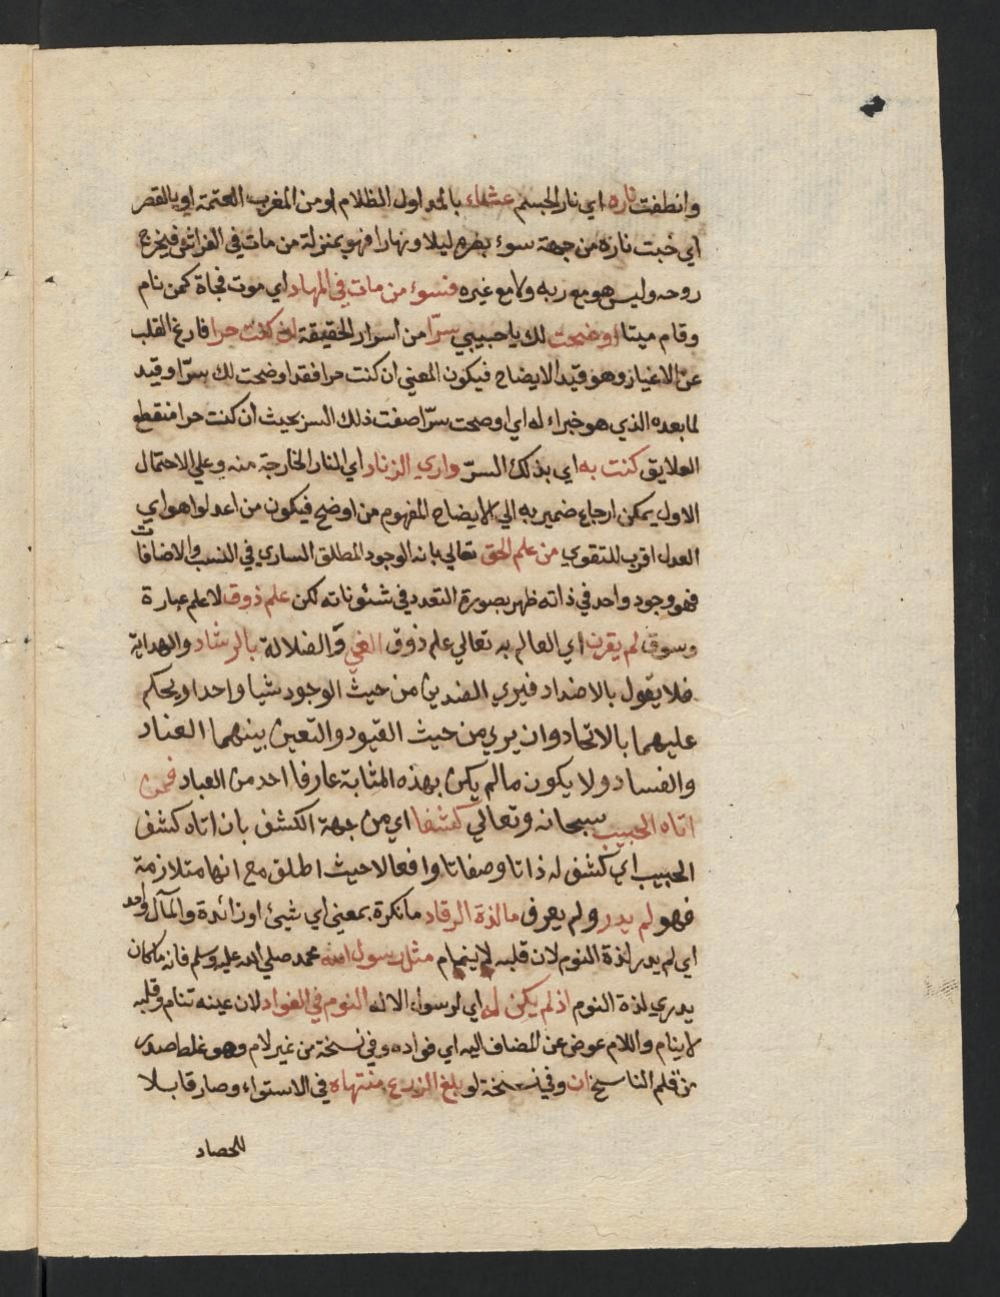 وانطفت ناره اي نار الجسم عشاء بالمد اول الظلام او من المغرب العتمة او بالقصر
اي خبت ناره من جهة سوء بصره ليلا ونهارا فهو بمنزلة من مات في الفراش فيخرج
روحه وليس هو مع ربه ولا مع غيره فسوء من مات في المهاد اي موت فجاة كمن نام
وقام ميتا اوضحت لك يا حبيبي سرّا من اسرار الحقيقة ان كنت حرا فارغ القلب
عن الاغيار وهو قيد الايضاح فيكون المعني ان كنت حرا فقد اوضحت لك سرّا وقيد
لما بعده الذي هو خبراء له اي اوضحت سرّا صفت ذلك السر بحيث ان كنت حرا منقطع
العلايق كنت به اي بذلك السرّ واري الزناد اي النار الخارجة منه وعلي الاحتمال
الاول يمكن ارجاع ضمير به الي الايضاح المفهوم من اوضح فيكون من اعدلوا هو اي
العدل اقرب للتقوي من علم الحق تعالي بانه الوجود المطلق الساري في النسب والاضافات
فهو وجود واحد في ذاته ظهر بصورة التعدد في شئوناته لكن علم ذوق لا علم عبارة
وسوق لم يقرن اي العالم به تعالي علم ذوق الغي والضلالة بالرشاد والهداية
فلا يقول بالاضداد فيري الضدين من حيث الوجود شيا واحدا ويحكم
عليهما بالاتحاد وان يري من حيث القيود والتعين بينهما العناد
والفساد ولا يكون ما لم يكن بهذه المثابة عارفا احد من العباد فمن
اتاه الحبيب سبحانه وتعالي كشفا اي من جهة الكشف بان اتاه كشف
الحبيب اي كشف له ذاتا وصفاتا وافعالا حيث اطلق مع انها متلازمة
فهو لم يدر ولم يعرف ما لذة الرقاد ما نكرة بمعني اي شيئ او زائدة والمآل واحد
اي لم يدر لذة النوم لان قلبه لا ينام مثل رسول الله محمد صلي الله عليه وسلم فانه ما كان
يدري لذة النوم اذ لم يكن له اي لرسول الاله النوم في الفواد لان عينه تنام وقلبه
لا ينام واللام عوض عن المضاف اليه اي فواده وفي نسخة من غير لام وهو غلط صدر
من قلم الناسخ ان وفي نسخة لو بلغ الزرع منتهاه في الاستواء وصار قابلا
للحصاد